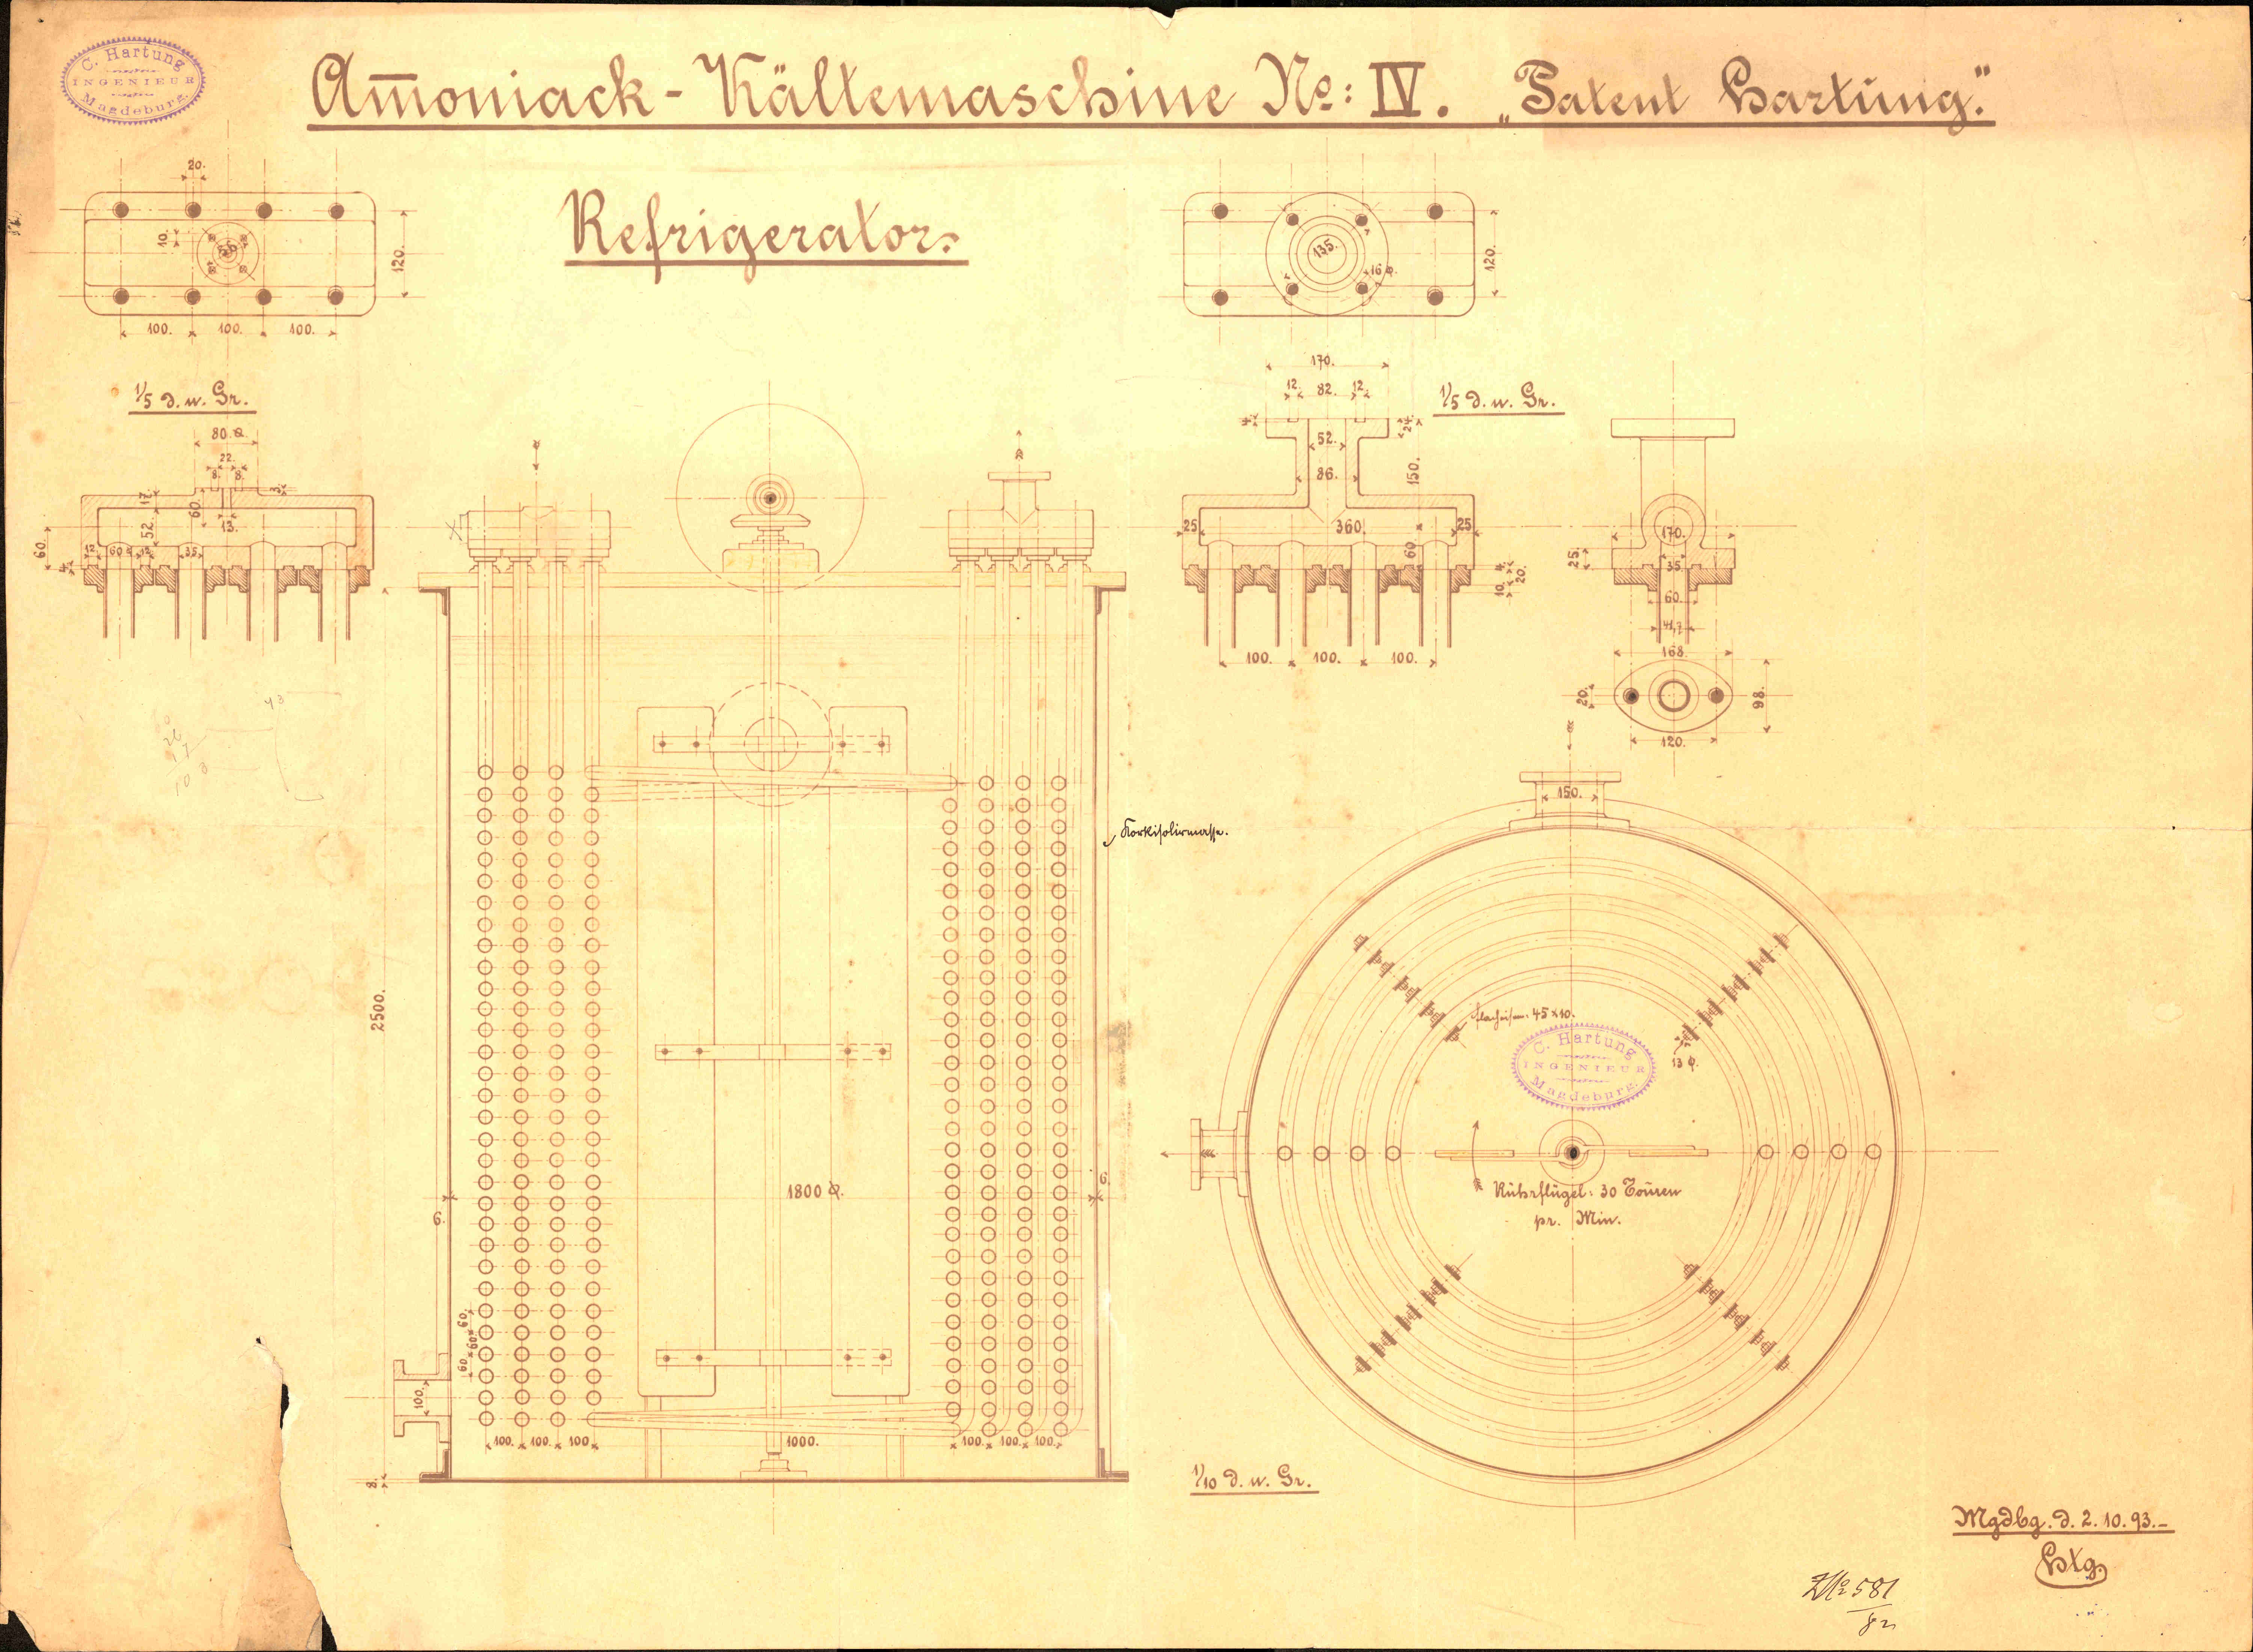 C. Hartung
INGENIEUR
Magdeburg.
Am̅oniack-Kältemaschine No: IV. „Patent Hartung."
Refrigerator.
20.
10.
120.
100. 100. 100.
135.
16 ø.
120.
1/5 d. w. Gr.
80 ø
22.
8. 8.
3.
17.
60.
52.
13.
60.
12. 60. 12. 35.
4.
170.
12. 82. 12.
1/5 d. w. Gr.
4.
24.
52.
86.
150.
25 360. 25
60.
4.
10. 20.
100. 100. 100.
170.
25.
35.
60.
41,7
168.
20.
98.
120.
150.
Korkisolirmasse.
2500.
Flacheisen: 45×10.
13 ø.
C. Hartung
INGENIEUR
Magdeburg.
Rührflügel: 30 Touren
pr. Min.
1800 ø.
6.
6.
60 × 60 × 60.
100.
100. 100. 100. 1000. 100. 100. 100.
8.
1/10 d. w. Gr.
Mgdbg. d. 2. 10. 93.-
Htg.
ZNo 581